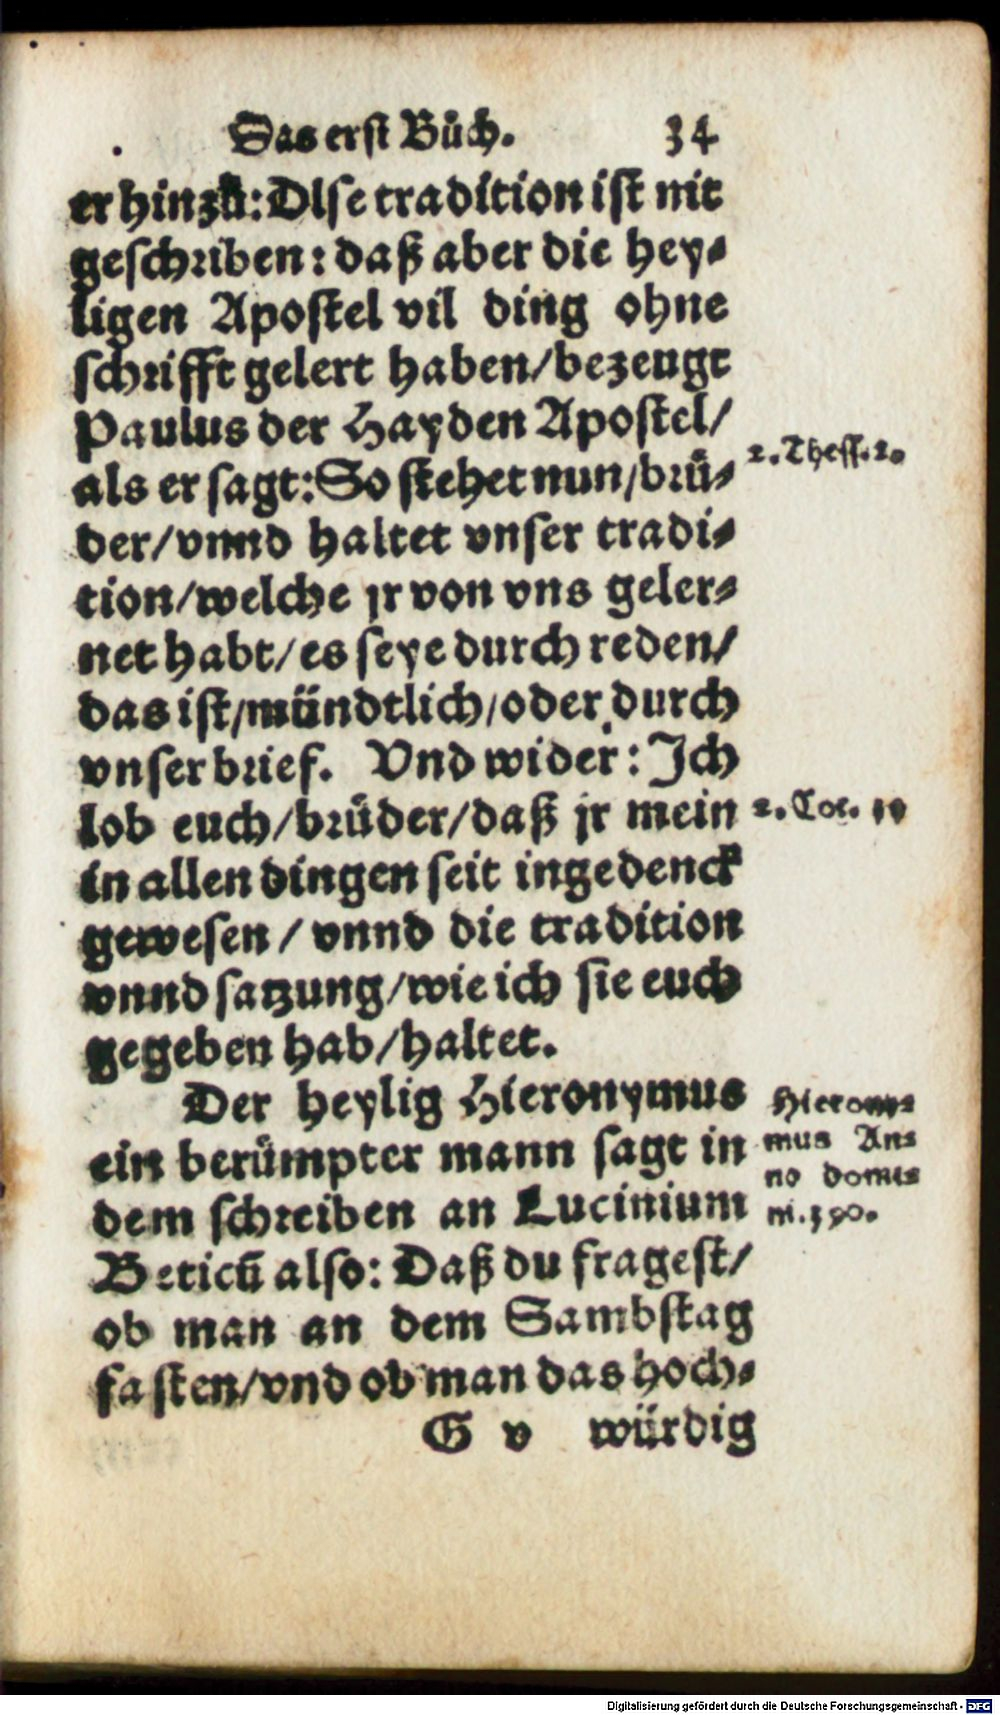 Das erst Bůch. 34
er hinzů: Dise tradition ist nit
geschriben: daß aber die hey⸗
ligen Apostel vil ding ohne
schrifft gelert haben/bezeugt
Paulus der Hayden Apostel/
als er sagt: So stehet nun/brü⸗
2. Thess. 2.
der/vnnd haltet vnser tradi⸗
tion/welche jr von vns geler⸗
net habt/es seye durch reden/
das ist/mündtlich/oder durch
vnser brief. Vnd wider: Ich
lob euch/brüder/daß jr mein
in allen dingen seit ingedenck
gewesen/vnnd die tradition
vnnd satzung/wie ich sie euch
gegeben hab/haltet.
Der heylig Hieronymus
ein berümpter mann sagt in
dem schreiben an Lucinium
Hierony⸗
mus An⸗
no domi⸗
ni. 390.
Beticū also: Daß du fragest/
ob man an dem Sambstag
fasten/vnd ob man das hoch⸗
G v würdig
Digitalisierung gefördert durch die Deutsche Forschungsgemeinschaft - DFG